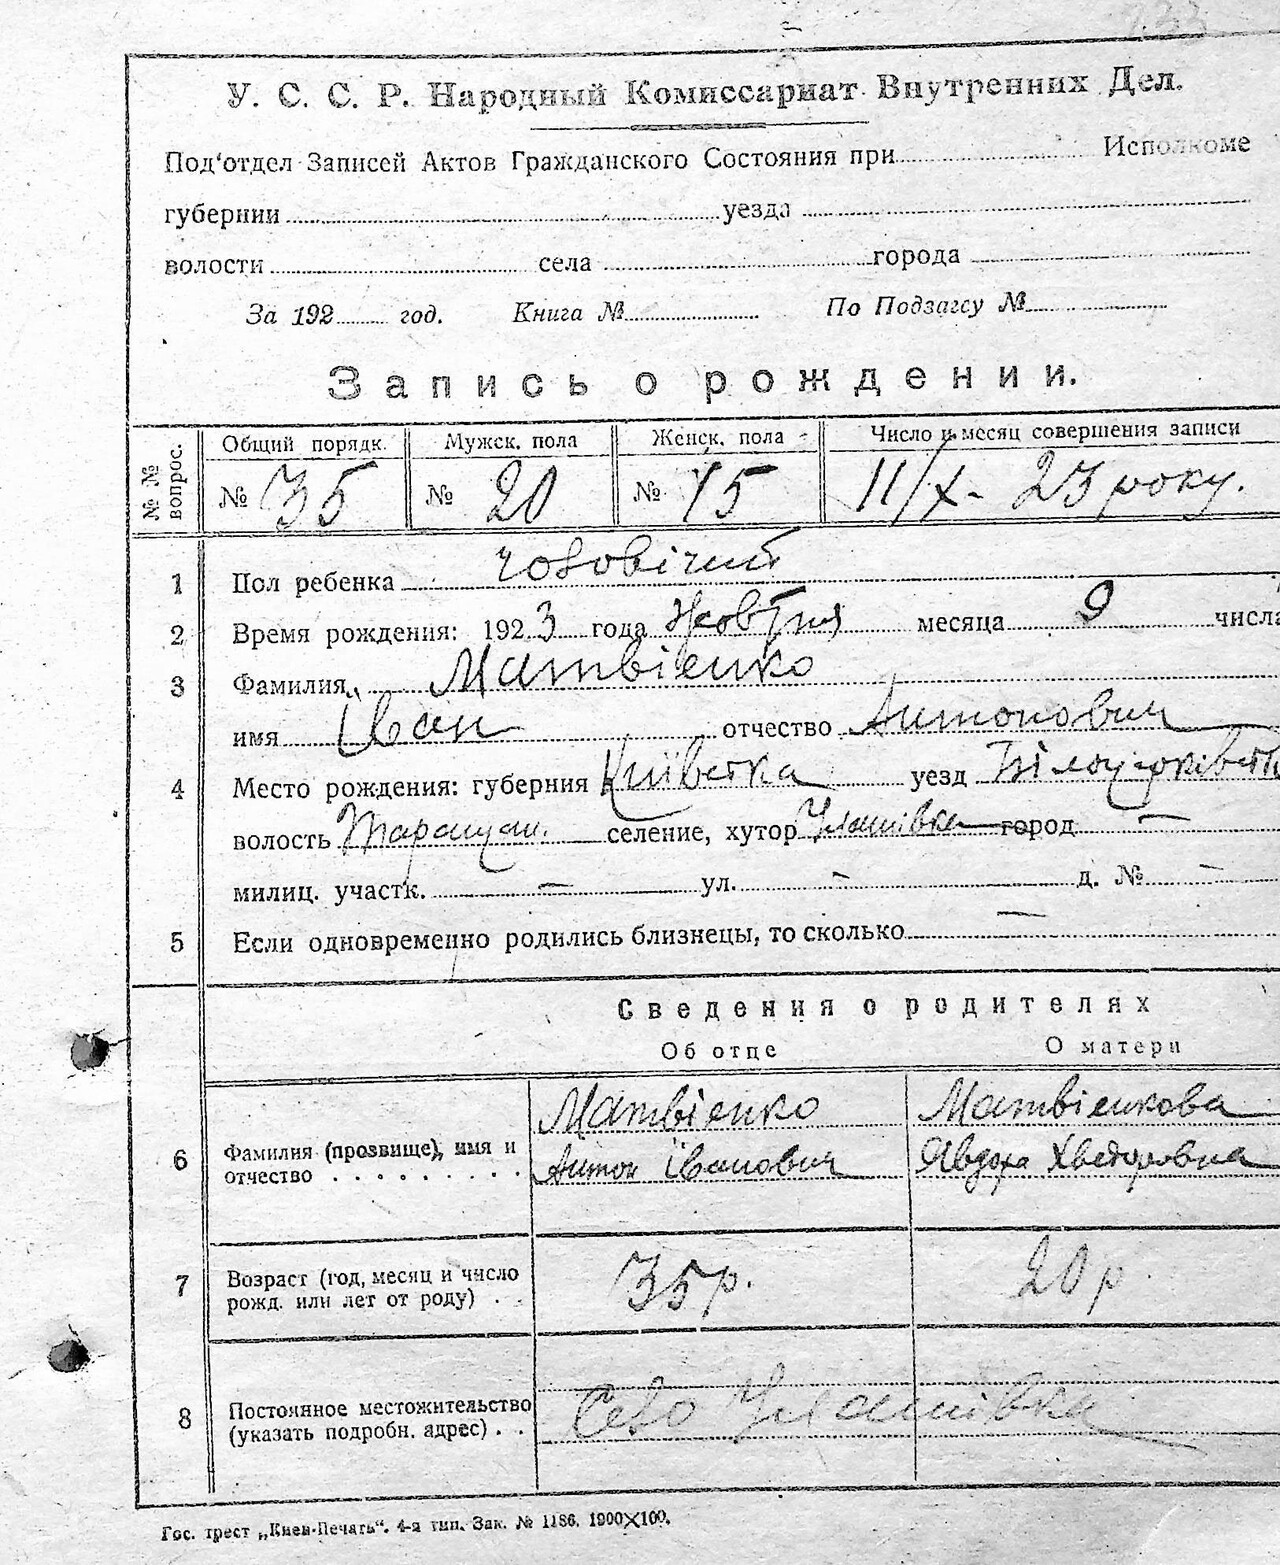 233
У. С. С. Р. Народный Комиссариат Внутренних Дел.
Под'отдел Записей Актов Гражданского Состояния при Исполкоме
губернии уезда
волости села города
За 192 год. Книга № По Подзагсу №
Запись о рождении.
№ № вопрос. Общий порядк. Мужск. пола Женск. пола Число и месяц совершения записи
№ 35 № 20 № 15 11/X - 23 року.
1 Пол ребенка чоловічий
2 Время рождения: 1923 года Жовтня месяца 9 числа
3 Фамилия Матвіенко
имя Іван отчество Антонович
4 Место рождения: губерния Київська уезд Білоцерківськ
волость Таращан. селение, хутор Улашівка город —
милиц. участк. — ул. — д. № —
5 Если одновременно родились близнецы, то сколько —
Сведения о родителях
Об отце О матери
Матвіенко Матвіенкова
6 Фамилия (прозвище), имя и Антон Іванович Явдоха Хведоровна
отчество . . . . . . . .
7 Возраст (год, месяц и число 35 р. 20 р.
рожд. или лет от роду) . .
8 Постоянное местожительство Село Улашівка
(указать подробн. адрес) . .
Гос. трест „Киев-Печать". 4-я тип. Зак. № 1186. 1900×100.